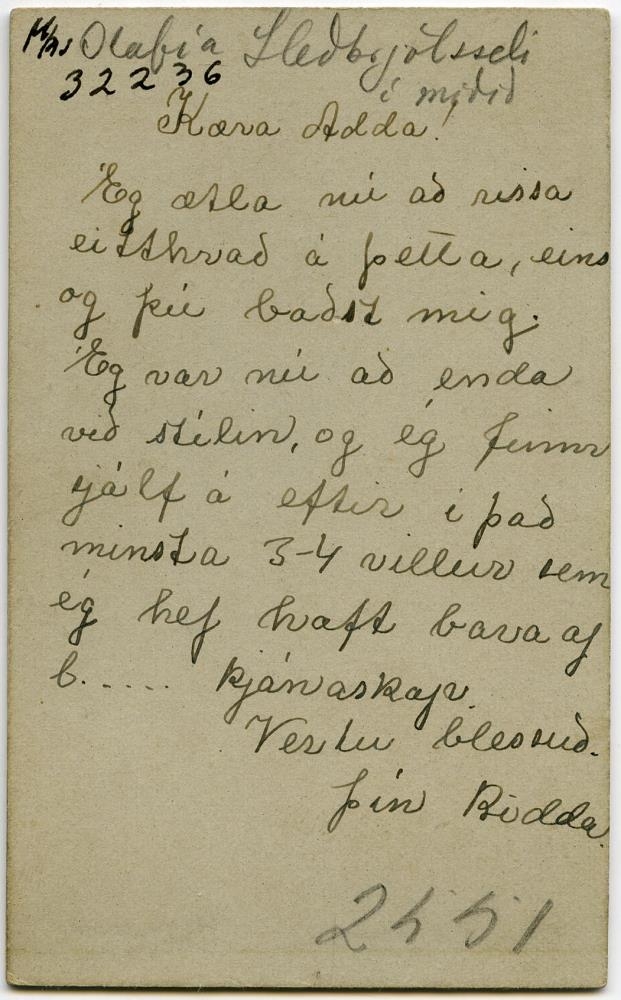 Mrs Olafia Sleðbrjótssoli
32236
í miðið
Kæra Adda!
Ég ætla nú að rissa
eitthvað á þetta, eins
og þú baðst mig.
Ég var nú að enda
við stílin, og ég finnr
sjálf á eftir í það
minsta 3-4 villur sem
ég hef haft bara af
b..... kjánaskap.
Vertu blessuð.
þín Bidda.
2551